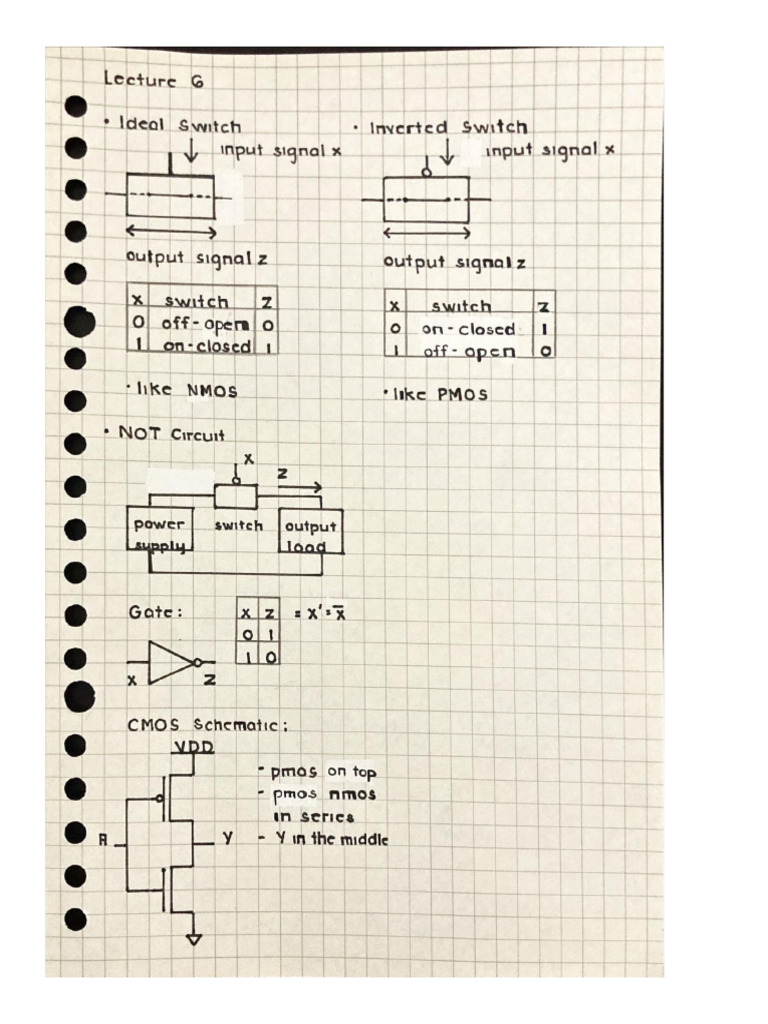 Lecture 6
• Ideal Switch
input signal x
output signal z
x switch z
0 off-open 0
1 on-closed 1
• like NMOS
• Inverted Switch
input signal x
output signal z
x switch z
0 on-closed 1
1 off-open 0
• like PMOS
• NOT Circuit
x
z
power supply
switch
output load
Gate:
x z
0 1
1 0
= x' = x̅
x
z
CMOS Schematic:
VDD
A
Y
- pmos on top
- pmos nmos
in series
- Y in the middle